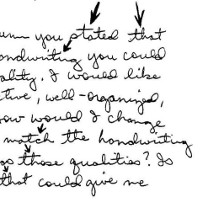 you stated that
handwriting you could
ality. I would like
tive, well-organized,
how would I change
match the handwriting
those qualities? Is
that could give me